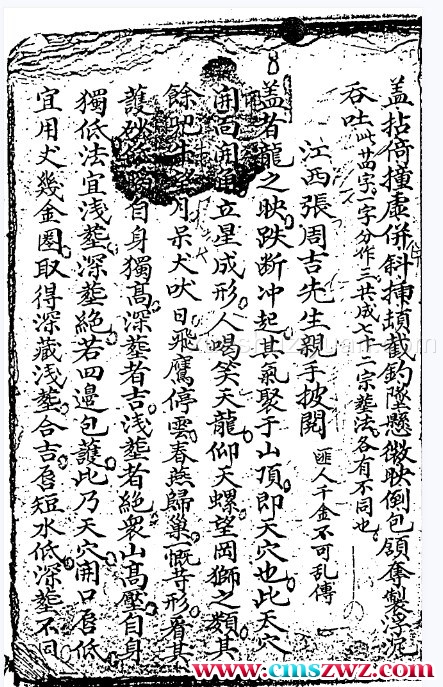 盖拈倚撞虚併斜揷頭截釣墜懸微映倒包領奪製浮沉
吞吐此苗字一字分作三共成七十二宗塟法各有不同也
江西張周吉先生親手披閲 匪人千金不可乱傳
盖者龍之映跌断冲起其氣聚于山頂即天穴也此天穴
開百開通立星成形人喝笑天龍仰天螺望岡獅之類其
餘兕牛望月呆犬吠日飛鷹停雲春燕歸巢慨等形看其
護砂自身獨髙深塟者吉浅塟者絶衆山髙壓自身
獨低法宜浅塟深塟絶若四邊包護此乃天穴開口唇低
宜用丈幾金圏取得深藏浅塟合吉唇短水低深塟不同
www.cmszwz.com